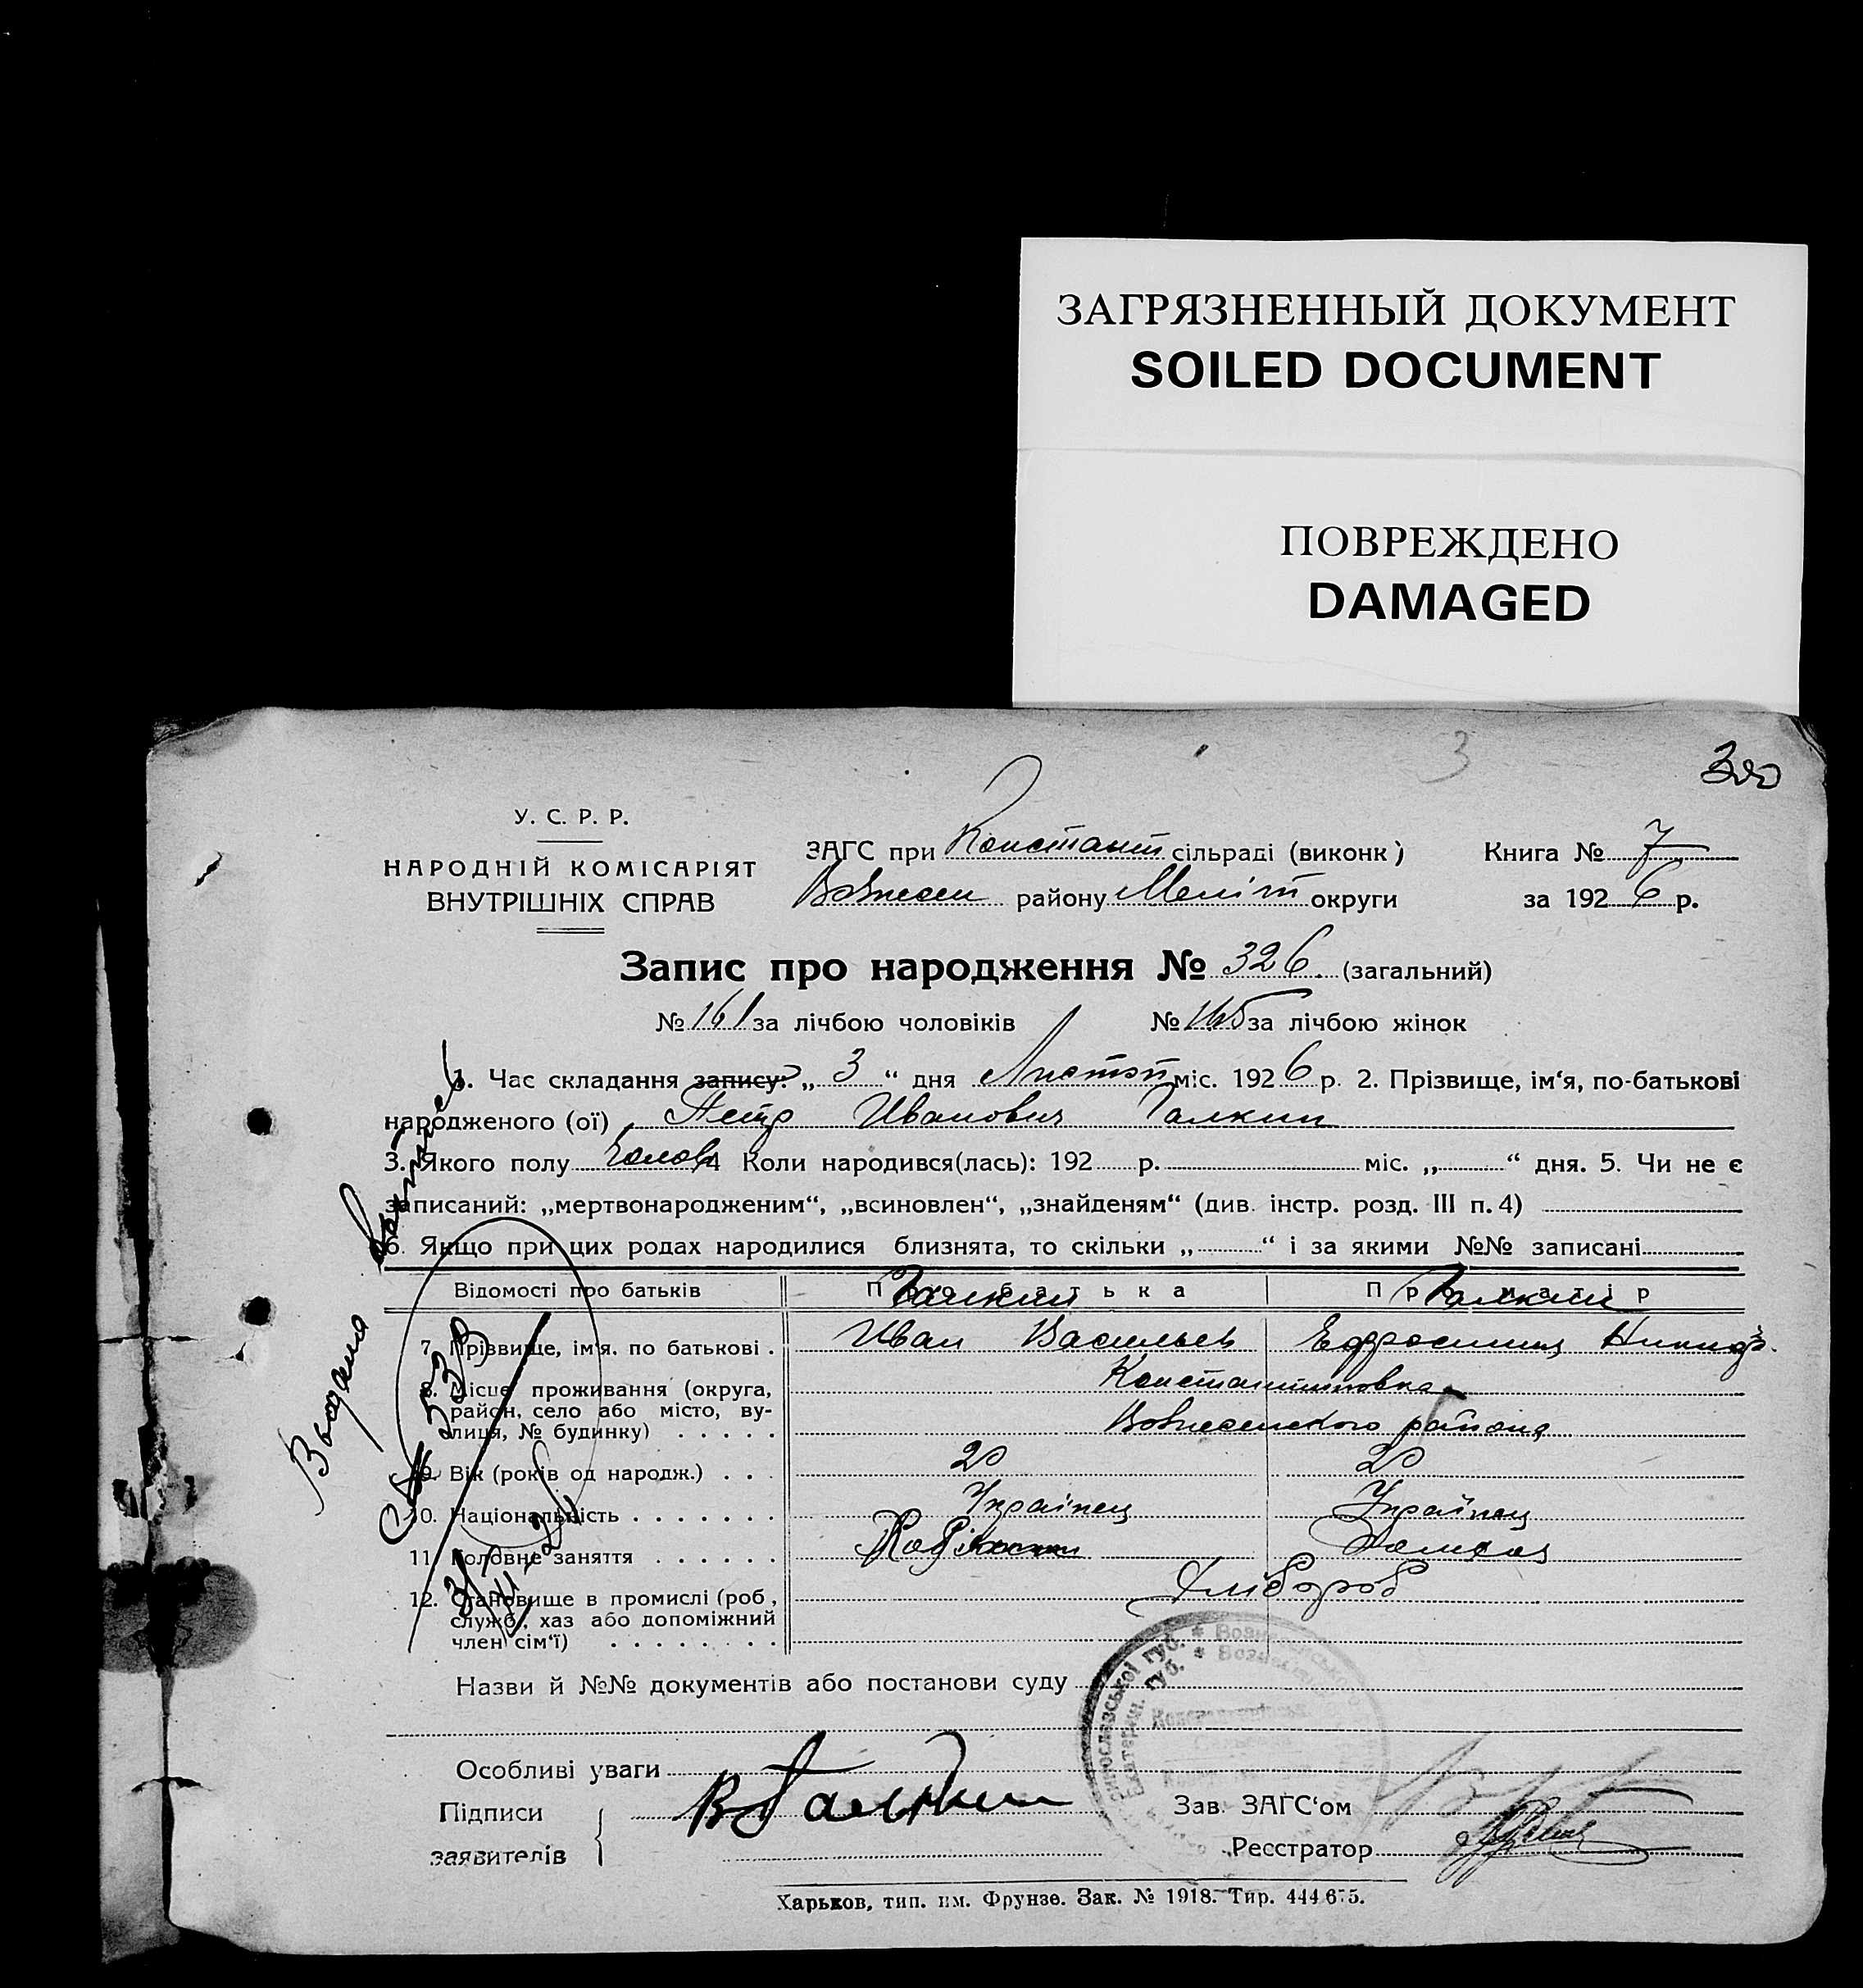 ЗАГРЯЗНЕННЫЙ ДОКУМЕНТ
SOILED DOCUMENT
ПОВРЕЖДЕНО
DAMAGED
3
У. С. Р. Р.
НАРОДНІЙ КОМІСАРІЯТ
ВНУТРІШНІХ СПРАВ
ЗАГС при Констант сільраді (виконк)
Вознесен району Меліт округи
Книга № 7
за 1926 р.
Запис про народження № 326. (загальний)
№ 161 за лічбою чоловіків № 165 за лічбою жінок
1. Час складання запису: „ 3 “ дня Листоп міс. 1926 р. 2. Прізвище, ім‘я, по-батькові
народженого (ої) Петр Иванович Галкин
3. Якого полу Чолов 4 Коли народився(лась): 192 р. міс. „ “ дня. 5. Чи не є
записаний: „мертвонародженим“, „всиновлен“, „знайденям“ (див. інстр. розд. III п. 4)
6. Якщо при цих родах народилися близнята, то скільки „ “ і за якими №№ записані
Відомості про батьків Про батька Про матір
Галкин Галкин
7. Прізвище, ім‘я. по батькові . Иван Васильев Ефросиния
8. Місце проживання (округа, Константиновка
район, село або місто, ву-
лиця, № будинку) . . . . . Вознесенского района
9. Вік (років од народж.) . . . 20 20
10. Національність . . . . . . . Українец Українец
11. Головне заняття . . . . . .
12. Становище в промислі (роб, Хлібороб
служб, хаз або допоміжний
член сім‘ї) . . . . . . . .
Выдана
Назви й №№ документів або постанови суду
Особливі уваги
Підписи
заявителів
В Галкин
Зав. ЗАГС‘ом
Реєстратор
Харьков, тип. им. Фрунзе. Зак. № 1918. Тир. 444675.